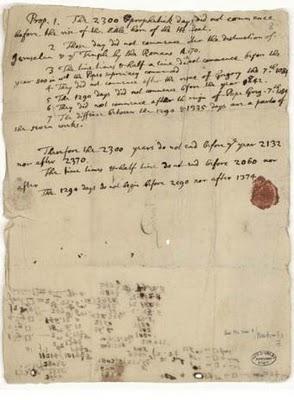 Prop. 1. The 2300 prophetick days did not commence
before the rise of the little horn of the He Goat.
2 Those day did not commence after the destruction of
Jerusalem & ye Temple by the Romans A. 70.
3 The time times & half a time did not commence before the
year 800 in wch the Popes supremacy commenced
4 They did not commence after the reigne of Gregory the 7th 1084
5 The 1290 days did not commence before the year 842.
6 They did not commence after the reigne of Pope Greg. 7th 1084
7 The difference between the 1290 & 1335 days are a parts of
the seven weeks.
Therefore the 2300 years do not end before ye year 2132
nor after 2370.
The time times & half time do not end before 2060 nor
after
The 1290 days do not begin before 2090 nor after 1374